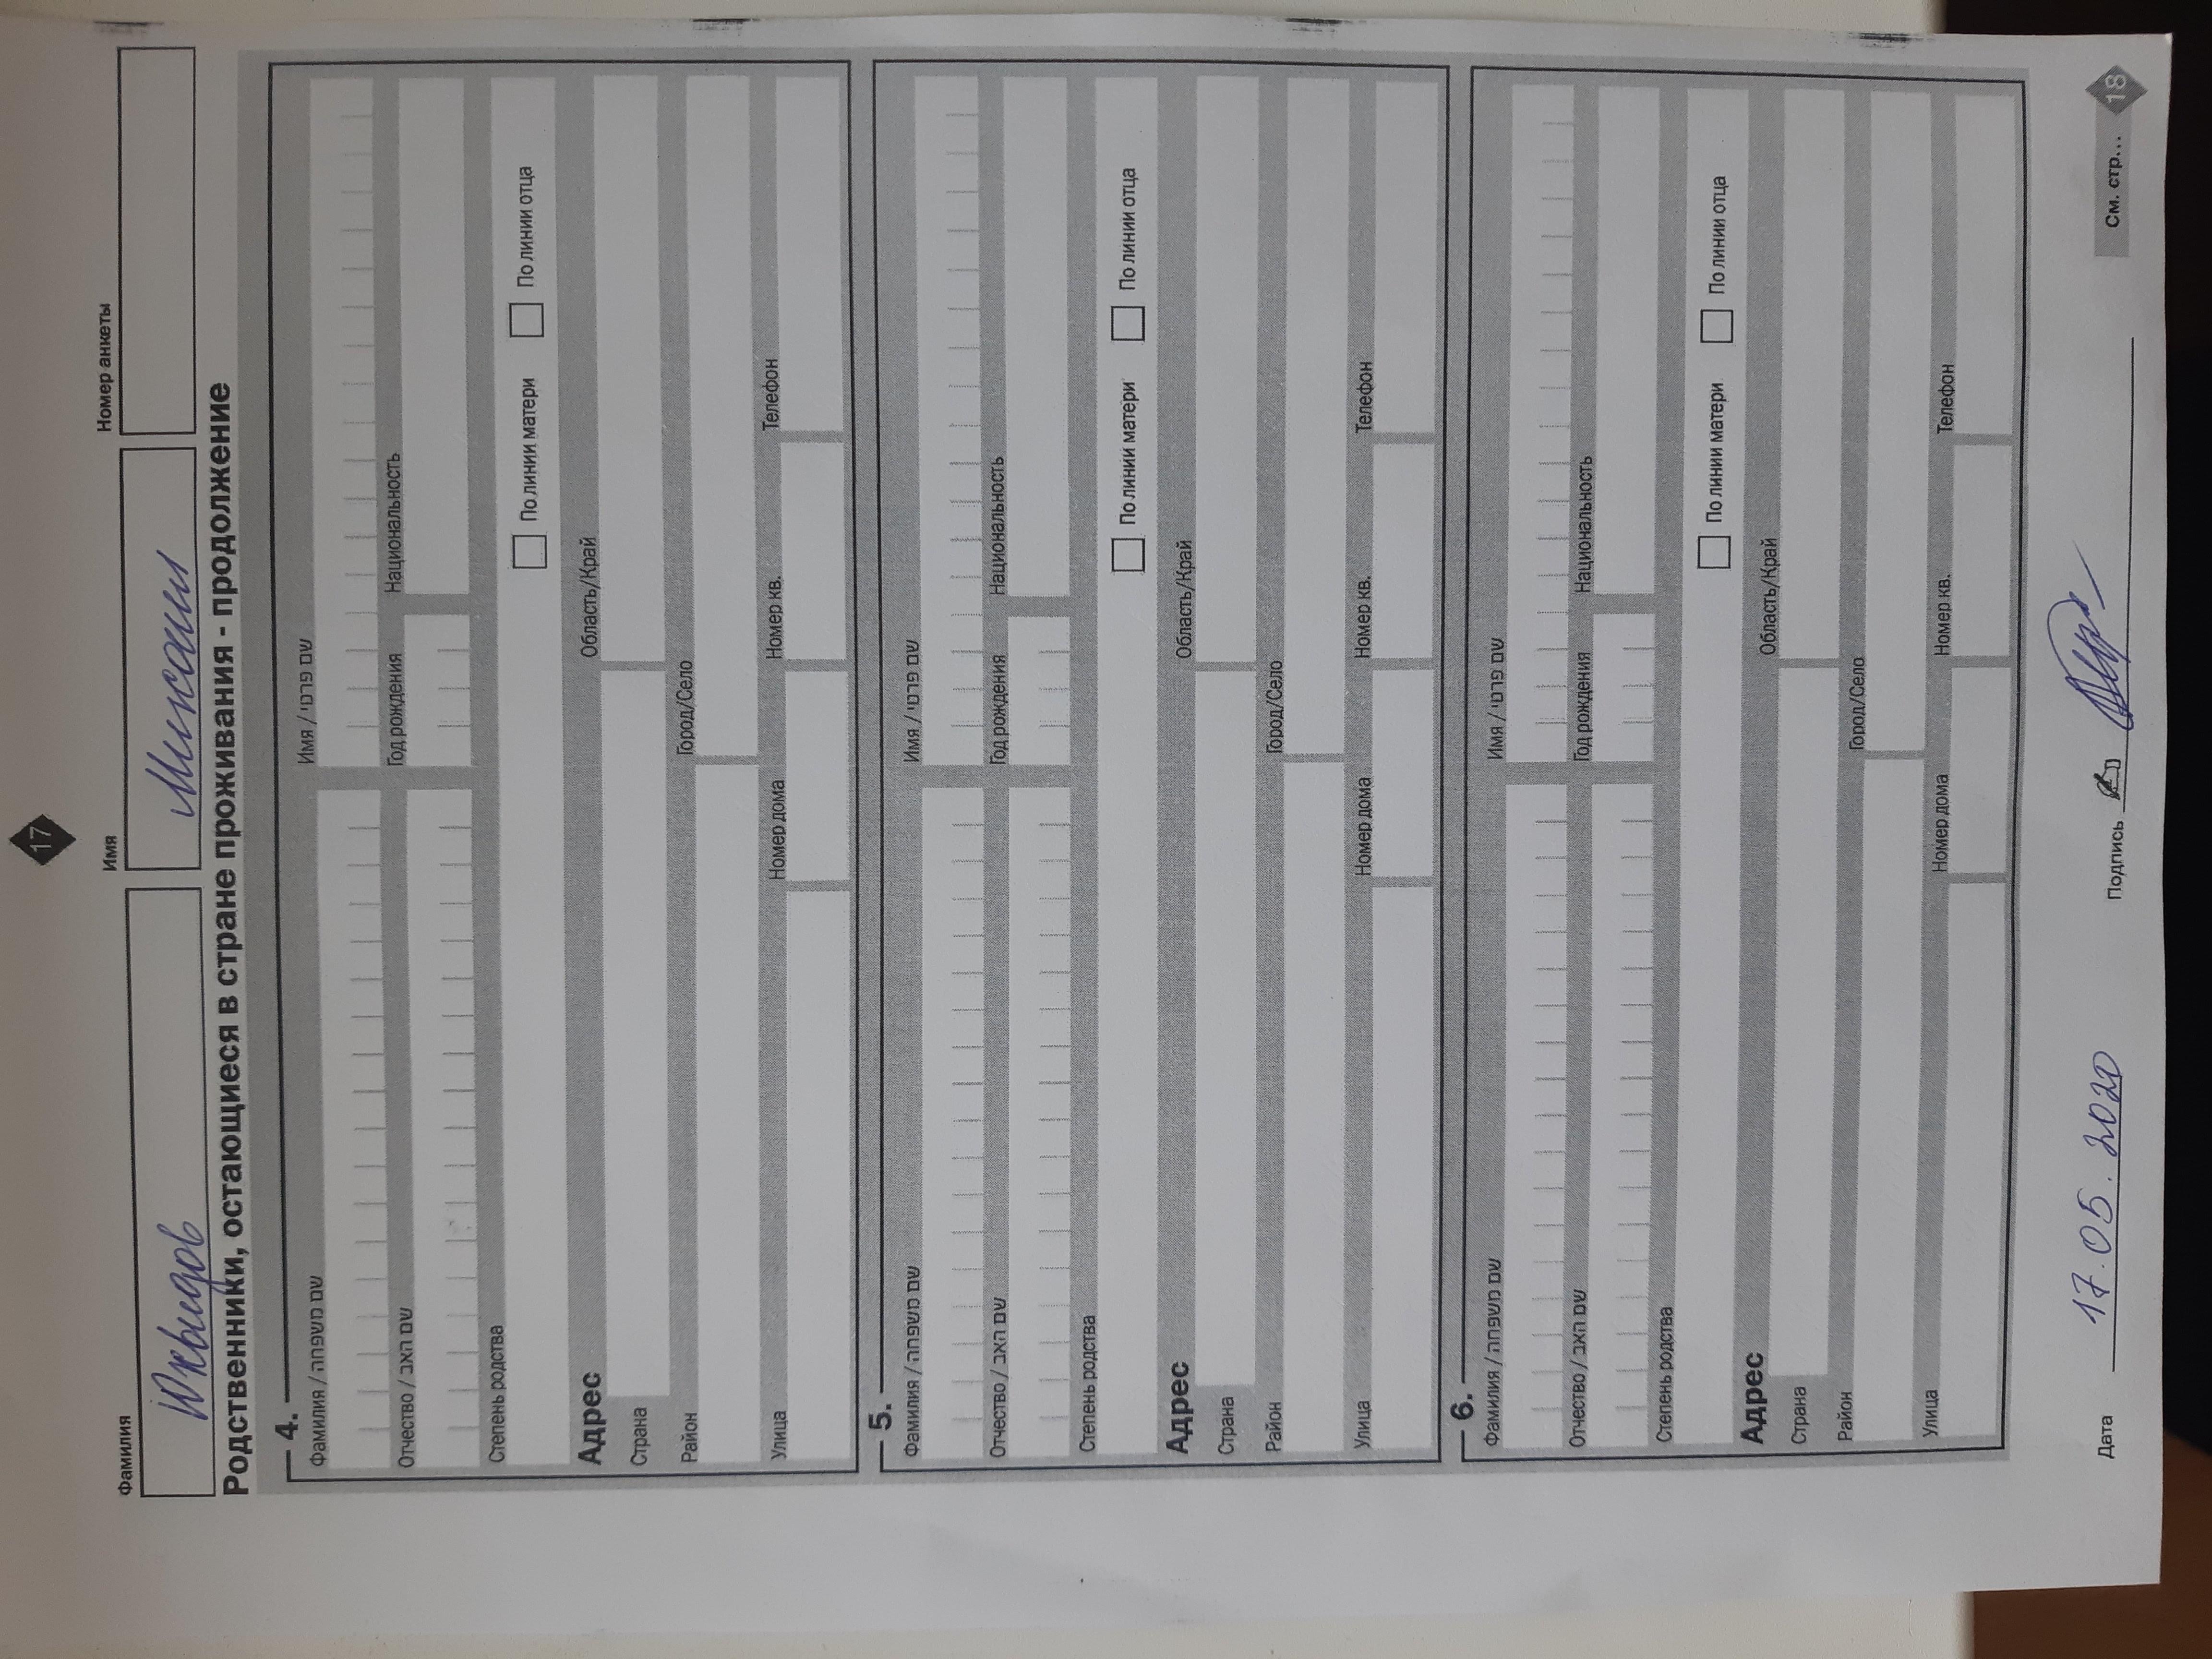 17
Фамилия Имя Номер анкеты
Юхвидов Михаил
Родственники, остающиеся в стране проживания - продолжение
4.
Фамилия / שם משפחה Имя / שם פרטי
Отчество / שם האב Год рождения Национальность
Степень родства
По линии матери По линии отца
Адрес Область/Край
Страна
Район Город/Село
Улица Номер дома Номер кв. Телефон
5.
Фамилия / שם משפחה Имя / שם פרטי
Отчество / שם האב Год рождения Национальность
Степень родства
По линии матери По линии отца
Адрес Область/Край
Страна
Район Город/Село
Улица Номер дома Номер кв. Телефон
6.
Фамилия / שם משפחה Имя / שם פרטי
Отчество / שם האב Год рождения Национальность
Степень родства
По линии матери По линии отца
Адрес Область/Край
Страна
Район Город/Село
Улица Номер дома Номер кв. Телефон
Дата 17.05.2020 Подпись См. стр... 18